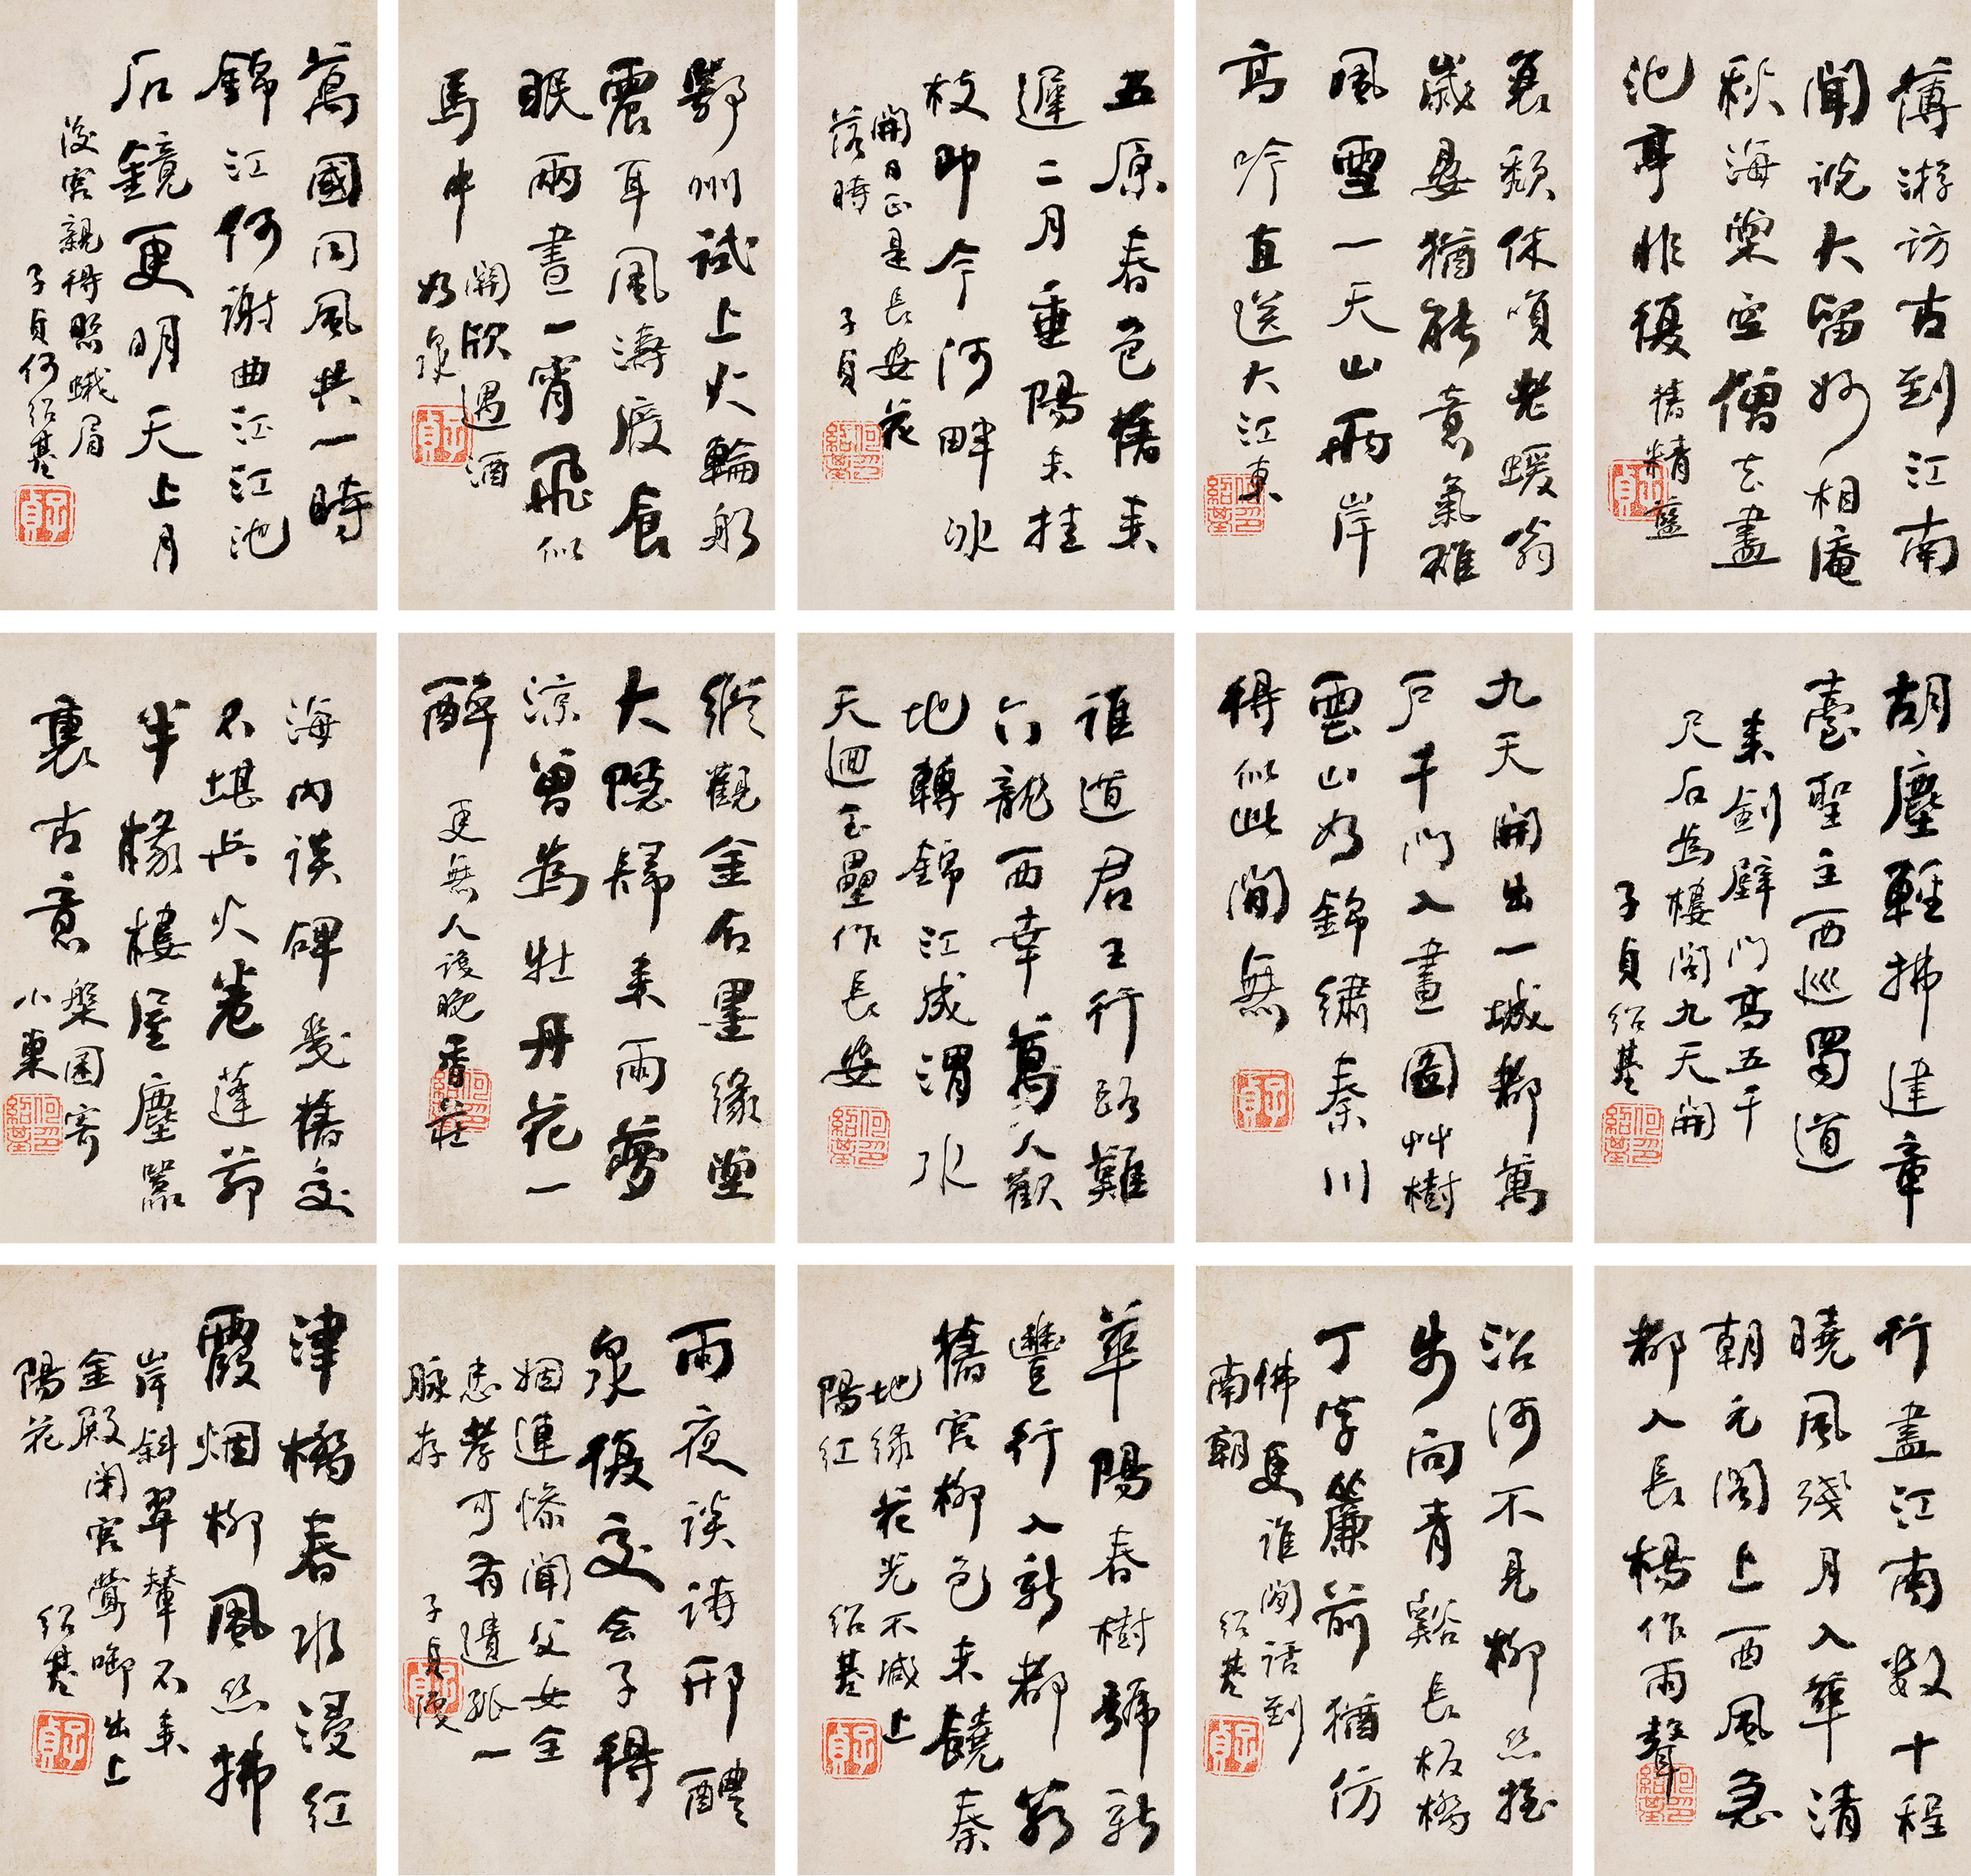 薄游訪古到江南
聞說大留妙相庵
秋海棠空僧去盡
池亭非復
舊精藍
子貞
衰頹休嗔老蝯翁
歲晏猶能意氣雄
風雪一天山兩岸
高吟直送大江東
何紹基印
五原春色舊來
遲二月垂陽未挂
枝即今河畔冰
開日正是長安花
落時
子貞
何紹基印
鄂州試上火輪船
震耳風濤廢食
眠兩晝一宵飛似
馬中
關欣遇酒
如泉
子貞
萬國同風共一時
錦江何謝曲江池
石鏡更明天上月
後宮親得照蛾眉
子貞何紹基
子貞
胡塵輕拂建章
臺聖主西巡蜀道
來劍壁門高五千
尺石為樓閣九天開
子貞紹基
何紹基印
九天開出一城都萬
戶千門入畫圖艸樹
雲山如錦繡秦川
得似此間無
子貞
誰道君王行路難
六龍西幸萬人歡
地轉錦江成渭水
天迴玉壘作長安
何紹基印
縱觀金石墨緣堂
大隱歸來雨夢
涼曾為牡丹花一
醉
更無人設晚香莊
何紹基印
海內談碑幾舊交
不堪兵火卷蓬茆
半椽樓屋塵囂
裏古意
槃囷寄
小東
何紹基印
行盡江南數十程
曉風殘月入華清
朝元閣上西風急
都入長楊作雨聲
何紹基印
沿河不見柳絲搖
步向青谿長板橋
丁字簾前猶仿
佛更誰閒話到
南朝
紹基
子貞
華陽春樹號新
豐行入新都若
舊宮柳色未饒秦
地綠花光不減上
陽紅
紹基
子貞
雨夜談詩邢醴
泉復交令子得
姻連慘聞父女全
忠孝可有遺孤一
脉存
子貞
津橋春水浸紅
霞烟柳風絲拂
岸斜翠輦不來
金殿閉宮鶯啣出上
陽花
紹基
子貞